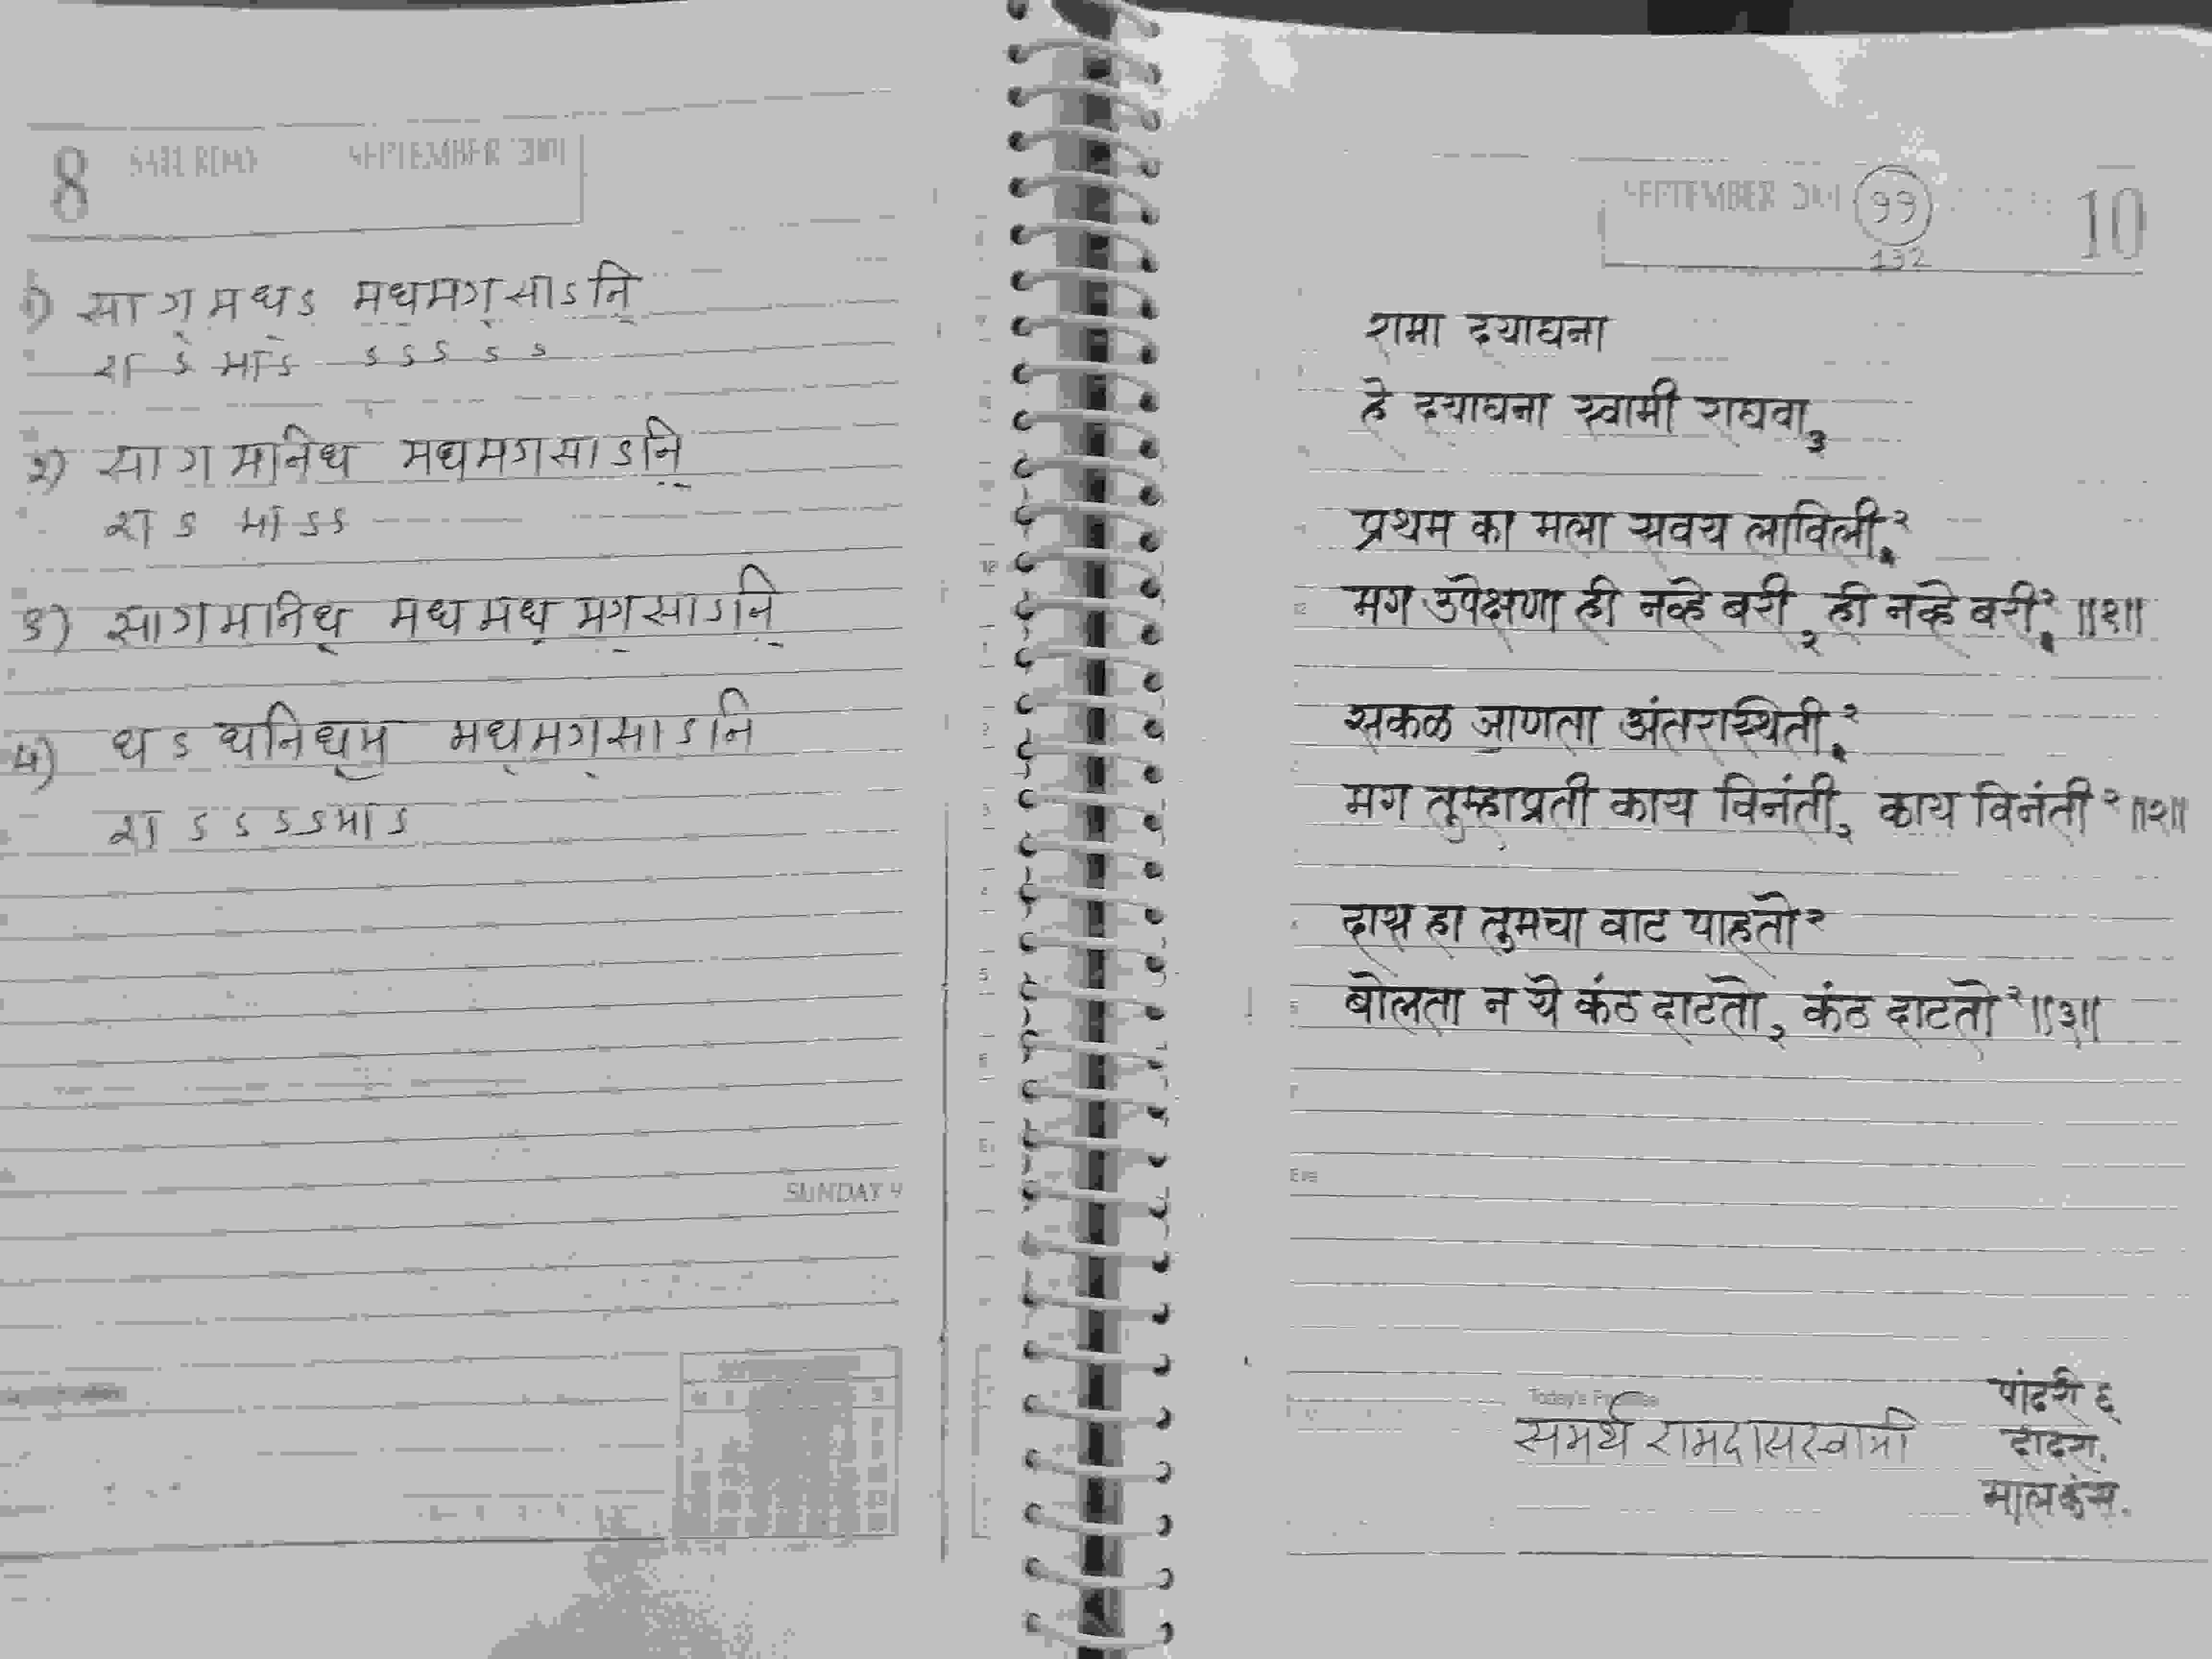 8 SATURDAY SEPTEMBER 2001
१) सा ग॒ म ध॒ ऽ मध॒मग॒सा ऽ नि॒
रा ऽ मा ऽ ऽ ऽ ऽ ऽ ऽ
२) सा ग मनिध मधमगसा ऽ नि॒
रा ऽ मा ऽ ऽ
३) सा ग मनिध॒ मध मध॒ मग॒सा ऽ नि॒
४) ध ऽ धनिध॒म मध॒मग॒सा ऽ नि
रा ऽ ऽ ऽ ऽ मा ऽ
SUNDAY 9
SEPTEMBER 2001 ११ 10
132
रामा दयाघना
हे दयाघना स्वामी राघवा ३
प्रथम का मला सवय लाविली २
मग उपेक्षणा ही नव्हे बरी २ ही नव्हे बरी २ ॥१॥
सकळ जाणता अंतरास्थिती २
मग तुम्हाप्रती काय विनंती २ काय विनंती २ ॥२॥
दास हा तुमचा वाट पाहतो २
बोलता न ये कंठ दाटतो २ कंठ दाटतो २ ॥३॥
Eve
पांढरी ६
समर्थ रामदासस्वामी
दादरा.
मालकंस.